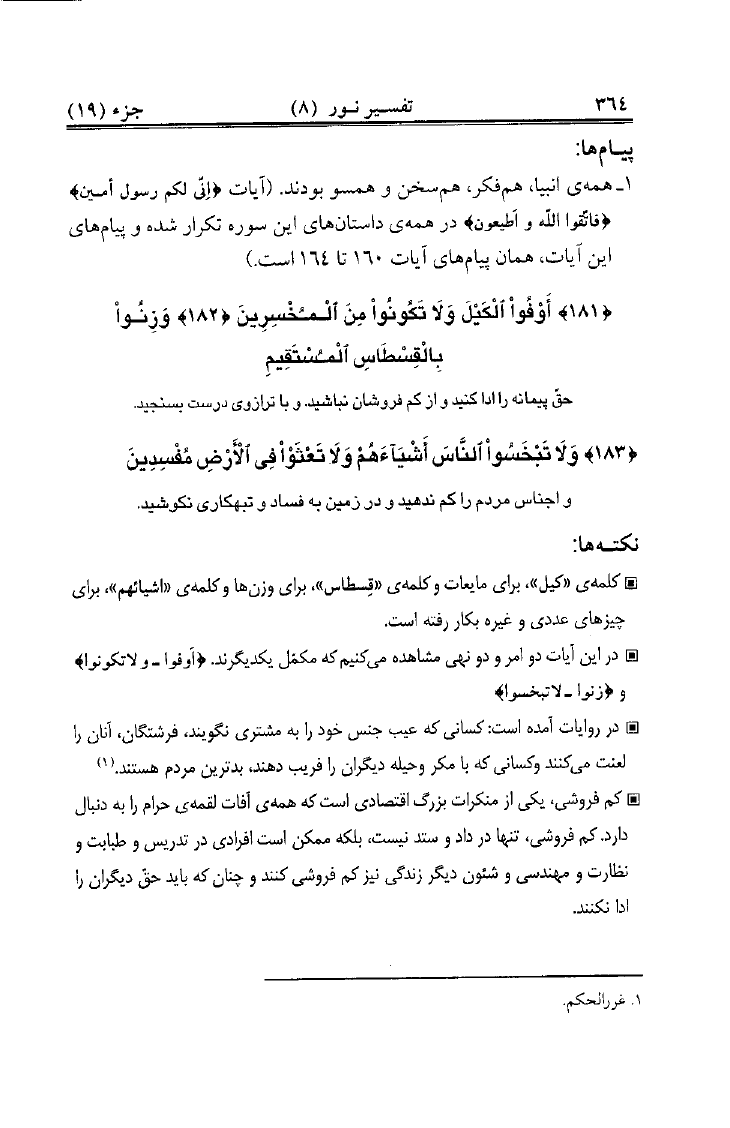 ٣٦٤ تفسیر نـور (٨) جزء (١٩)
پیـام‌ها:
١ـ همه‌ی انبیا، هم‌فکر، هم‌سخن و همسو بودند. (آیات ﴿اِنّی لکم رسول أمـین﴾
﴿فاتّقوا اللّه و أطیعون﴾ در همه‌ی داستان‌های این سوره تکرار شده و پیام‌های
این آیات، همان پیام‌های آیات ١٦٠ تا ١٦٤ است.)
﴿١٨١﴾ أَوْفُواْ ٱلْكَيْلَ وَلَا تَكُونُواْ مِنَ ٱلْـمُـخْسِرِينَ ﴿١٨٢﴾ وَزِنُـواْ
بِالْقِسْطَاسِ ٱلْمُسْتَقِيمِ
حقّ پیمانه را ادا کنید و از کم فروشان نباشید. و با ترازوی درست بسنجید.
﴿١٨٣﴾ وَلَا تَبْخَسُواْ ٱلنَّاسَ أَشْيَآءَهُمْ وَلَا تَعْثَوْاْ فِى ٱلْأَرْضِ مُفْسِدِينَ
و اجناس مردم را کم ندهید و در زمین به فساد و تبهکاری نکوشید.
نکتـه‌ها:
▣ کلمه‌ی «کیل»، برای مایعات و کلمه‌ی «قِسطاس»، برای وزن‌ها و کلمه‌ی «اشیائهم»، برای
چیزهای عددی و غیره بکار رفته است.
▣ در این آیات دو امر و دو نهی مشاهده می‌کنیم که مکمّل یکدیگرند. ﴿أوفوا ـ و لاتکونوا﴾
و ﴿زنوا ـ لاتبخسوا﴾
▣ در روایات آمده است: کسانی که عیب جنس خود را به مشتری نگویند، فرشتگان، آنان را
لعنت می‌کنند وکسانی که با مکر وحیله دیگران را فریب دهند، بدترین مردم هستند.(١)
▣ کم فروشی، یکی از منکرات بزرگ اقتصادی است که همه‌ی آفات لقمه‌ی حرام را به دنبال
دارد. کم فروشی، تنها در داد و ستد نیست، بلکه ممکن است افرادی در تدریس و طبابت و
نظارت و مهندسی و شئون دیگر زندگی نیز کم فروشی کنند و چنان که باید حقّ دیگران را
ادا نکنند.
١. غررالحکم.